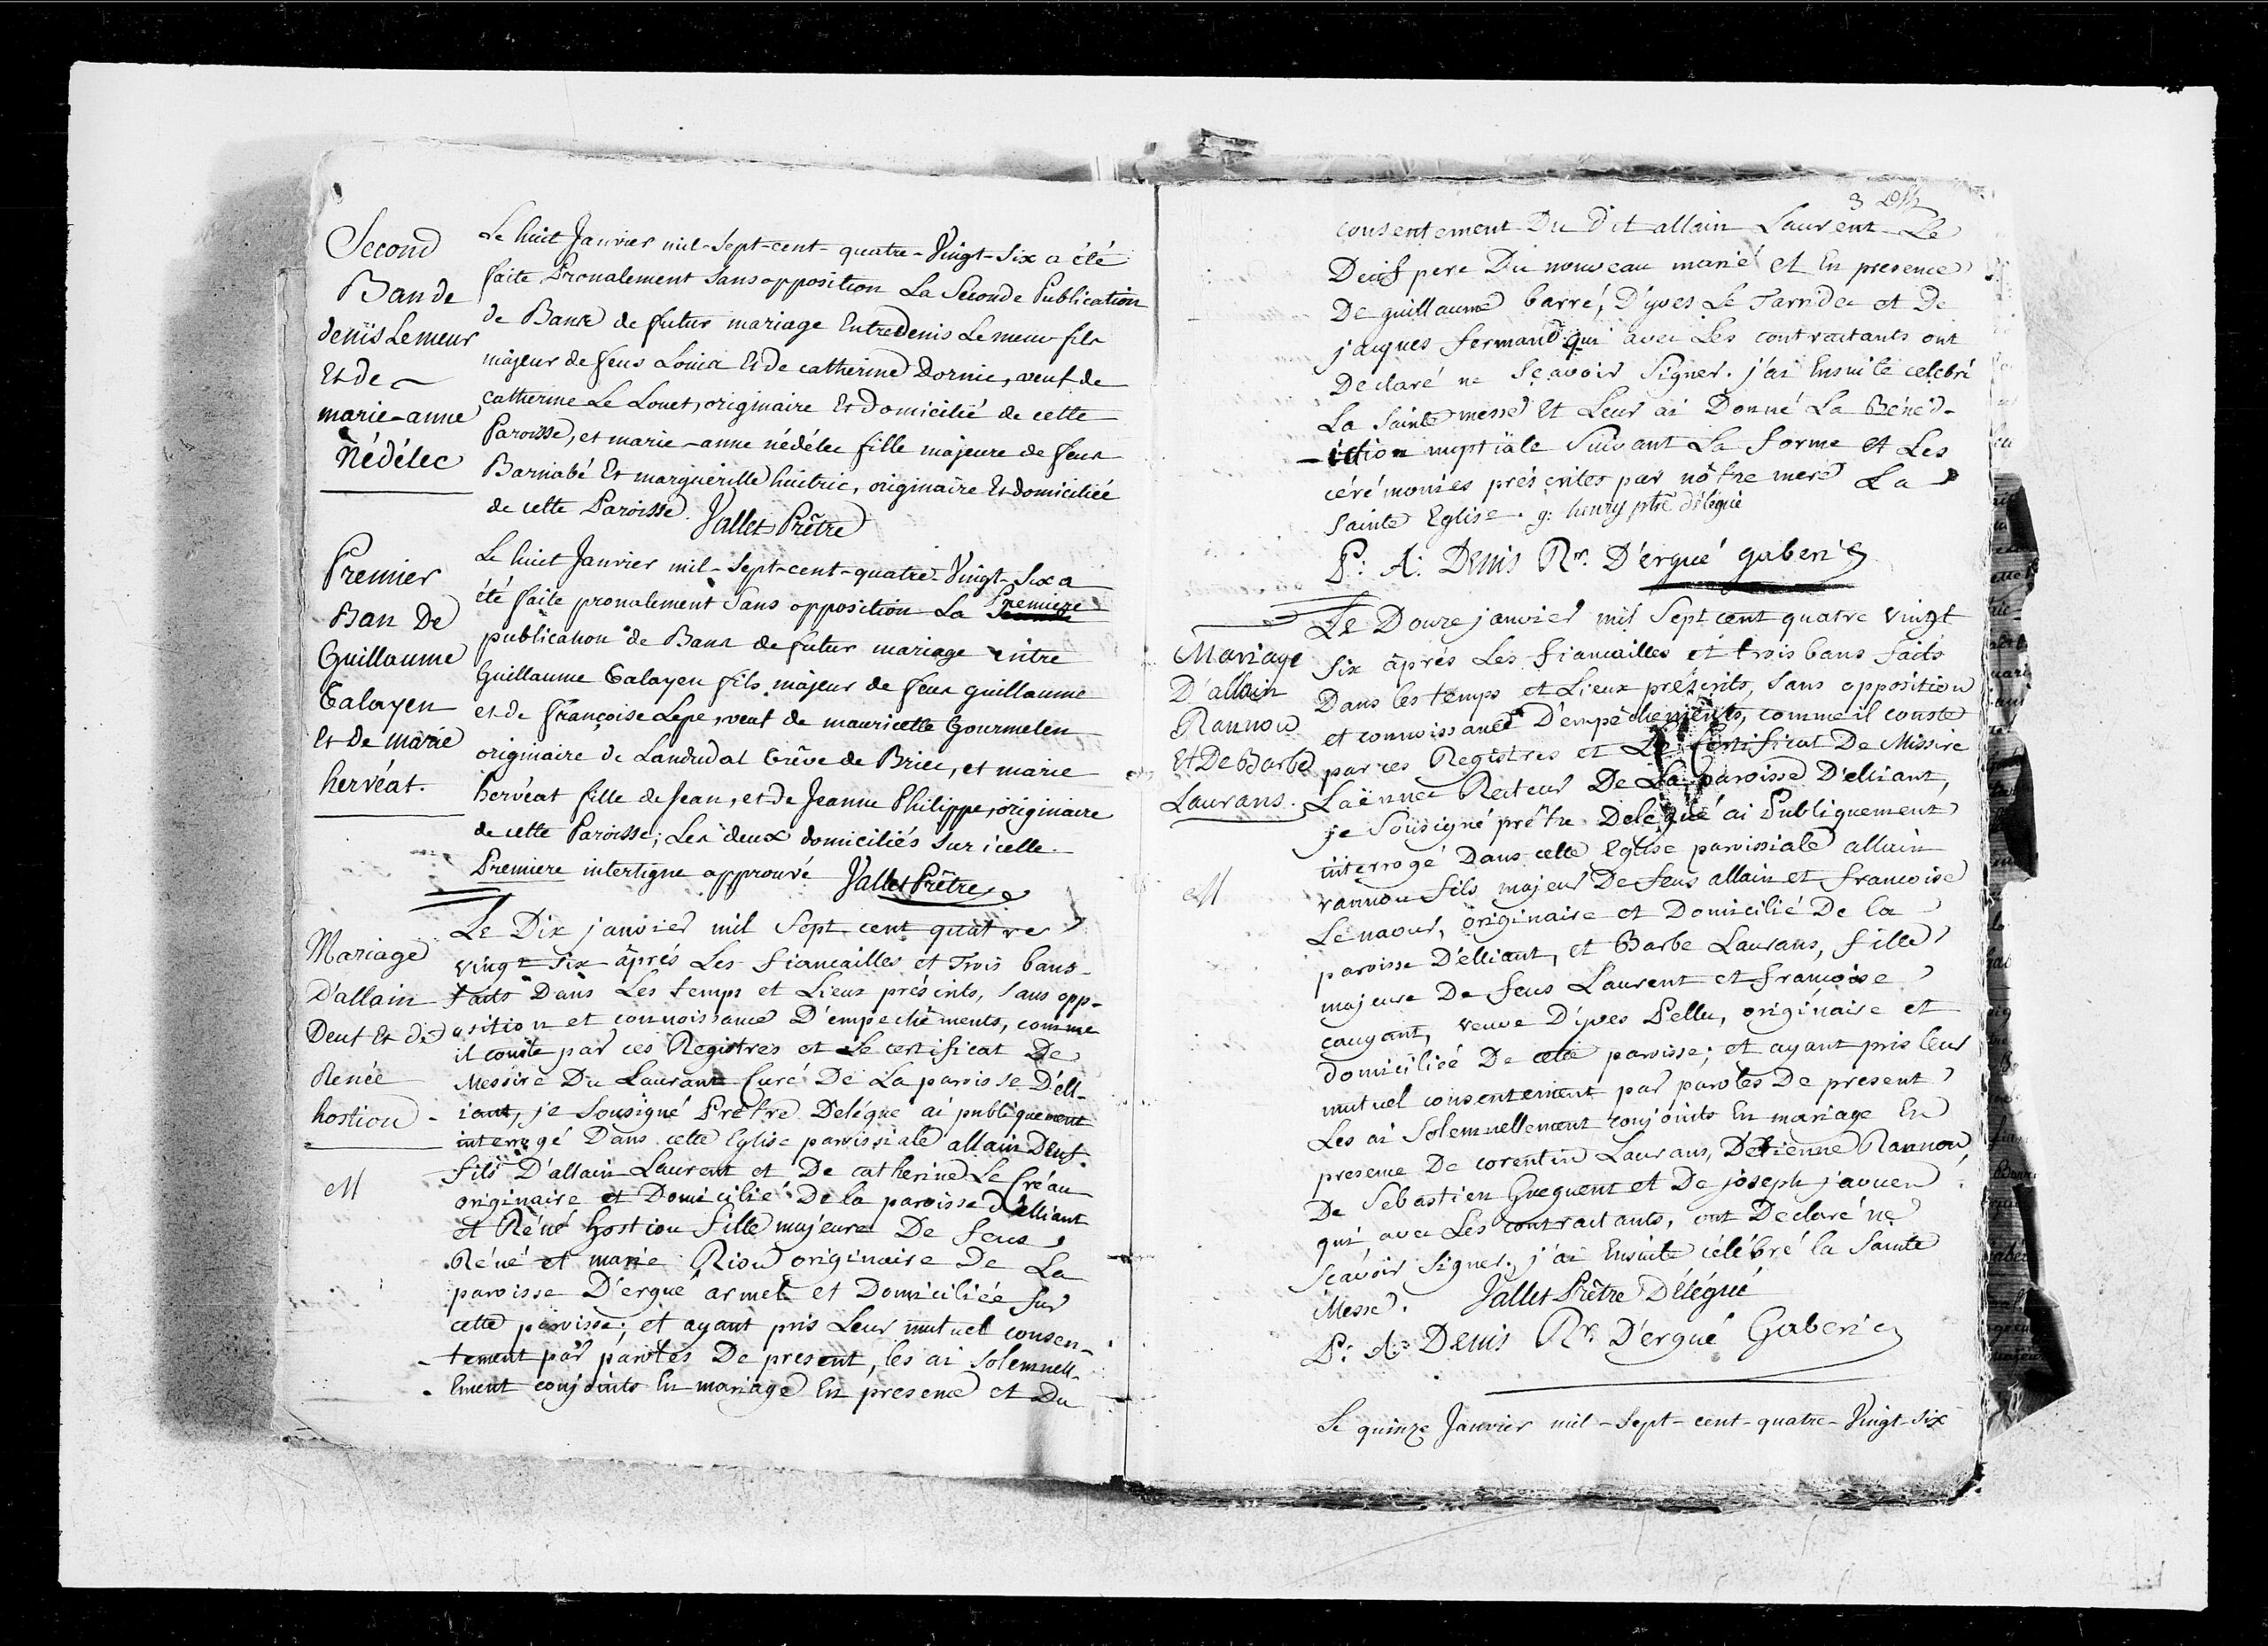 Second
Ban de
denis Le meur
Et de
marie-anne
Nédélec
Le huit Janvier mil-Sept-cent-quatre-Vingt-Six a été
faite Pronalement sans opposition La Seconde Publication
de Bans de futur mariage Entre denis Le meur fils
majeur de feus Louis Et de catherine Dornic, veuf de
catherine Le Louet, originaire Et domicilié de cette
Paroisse, et marie-anne nédélec fille majeure de feus
Barnabé Et marguerille huitric, originaire Et domiciliée
de cette Paroisse. Vallet Prêtre
Premier
Ban De
Guillaume
Calayen
Et De marie
hervéat.
Le huit Janvier mil-Sept-cent-quatre-Vingt-Six a
été faite pronalement Sans opposition La Premiere
publication de Bans de futur mariage entre
Guillaume Calayen fils majeur de feus guillaume
et de françoise Lepe, veuf de mauricette Gourmelen
originaire de Landudal trêve de Briec, et marie
hervéat fille de Jean, et de Jeanne Philippe, originaire
de cette Paroisse; Les deux domiciliés sur icelle.
Premiere interligne approuvé Vallet Prêtre
Mariage
D'allain
Deuf Et de
Renée
hostiou
M
Le Dix janvier mil Sept cent quatre
vingt Six âprés Les fiancailles et Trois bans
faits Dans Les temps et Lieux préscrits, sans opp-
osition et connoissance D'empechêments, comme
il conste par ces Registres et Le certificat De
Messire Du Laurant Curé De La paroisse D'ell-
iant, je Sousigné Prêtre Delégué ai publiquement
interrogé Dans cette Eglise paroissiale allain Deuf
fils D'allain Laurent et De catherine Le Creau
originaire et Domicilié De la paroisse d'elliant
et Réné hostiou fille majeure De feus
Réné et marie Riou originaire De La
paroisse D'ergué armel et Domiciliée sur
cette paroisse; et ayant pris Leur mutuel consen-
-tement par paroles De present, les ai Solemnell-
-ement conjoints En mariage En presence et Du
3
consentement Du dit allain Laurent Le
Deuf pere Du nouveau marié et En presence
De guillaume barré, D'yves Le Tarridec et De
jacques fermand qui avec Les contractants ont
Declaré ne Sçavoir Signer. j'ai Ensuite celebré
La Sainte messe Et Leur ai Donné La Béned-
-iction nuptiale Suivant La forme et Les
cérémonies préscrites par nôtre mere La
Sainte Eglise. g: henry ptre délégué
P: A: Denis Rr. D'ergué gaberic
Mariage
D'allain
Rannou
Et De Barbe
Laurans.
M
Le Douze janvier mil Sept cent quatre vingt
six âprés Les fiancailles et trois bans faits
Dans les temps et Lieux préscrits, sans opposition
et connoissance D'empêchements, comme il conste
par ces Registres et Le Certificat De Missire
Laënnec Recteur De La paroisse D'elliant,
je Sousigné prêtre Delégué ai Publiquement
interrogé Dans cette Eglise paroissiale allain
rannou fils majeur De feus allain et francoise
Lenaour, originaire et Domicilié De la
paroisse D'elliant, et Barbe Laurans, fille
majeure De feus Laurent et francoise
caugant, veuve D'yves Pellu, originaire et
domiciliée De cette paroisse; et ayant pris leur
mutuel consentement par paroles De present
Les ai Solemnellement conjoints En mariage En
presence De corentin Laurans, D'etienne Rannou,
De Sébastien Gueguent et De joseph jaouen
qui avec Les contractants, ont Declaré ne
Sçavoir Signer, j'ai Ensuite célébré la Sainte
Messe. Vallet Prêtre Délégué
P: A: Denis Rr. D'ergué Gaberic
Le quinze Janvier mil-Sept-cent-quatre-Vingt-Six